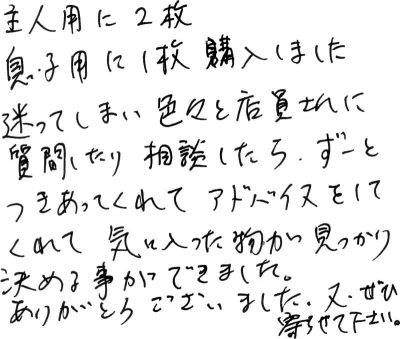 主人用に2枚
息子用に1枚 購入しました
迷ってしまい 色々と店員さんに
質問したり 相談したら、ずーと
つきあってくれて アドバイスをして
くれて 気に入った物が見つかり
決める事ができました。
ありがとうございました。又、ぜひ
寄らせて下さい。